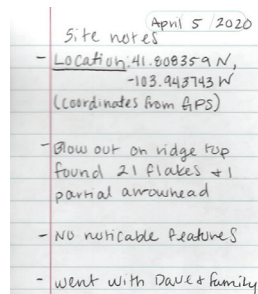 April 5 2020
Site notes
- Location: 41.808359 N,
-103.943743 W
(coordinates from GPS)
- Blow out on ridge top
found 21 flakes + 1
partial arrowhead
- No noticable features
- went with Dave & family